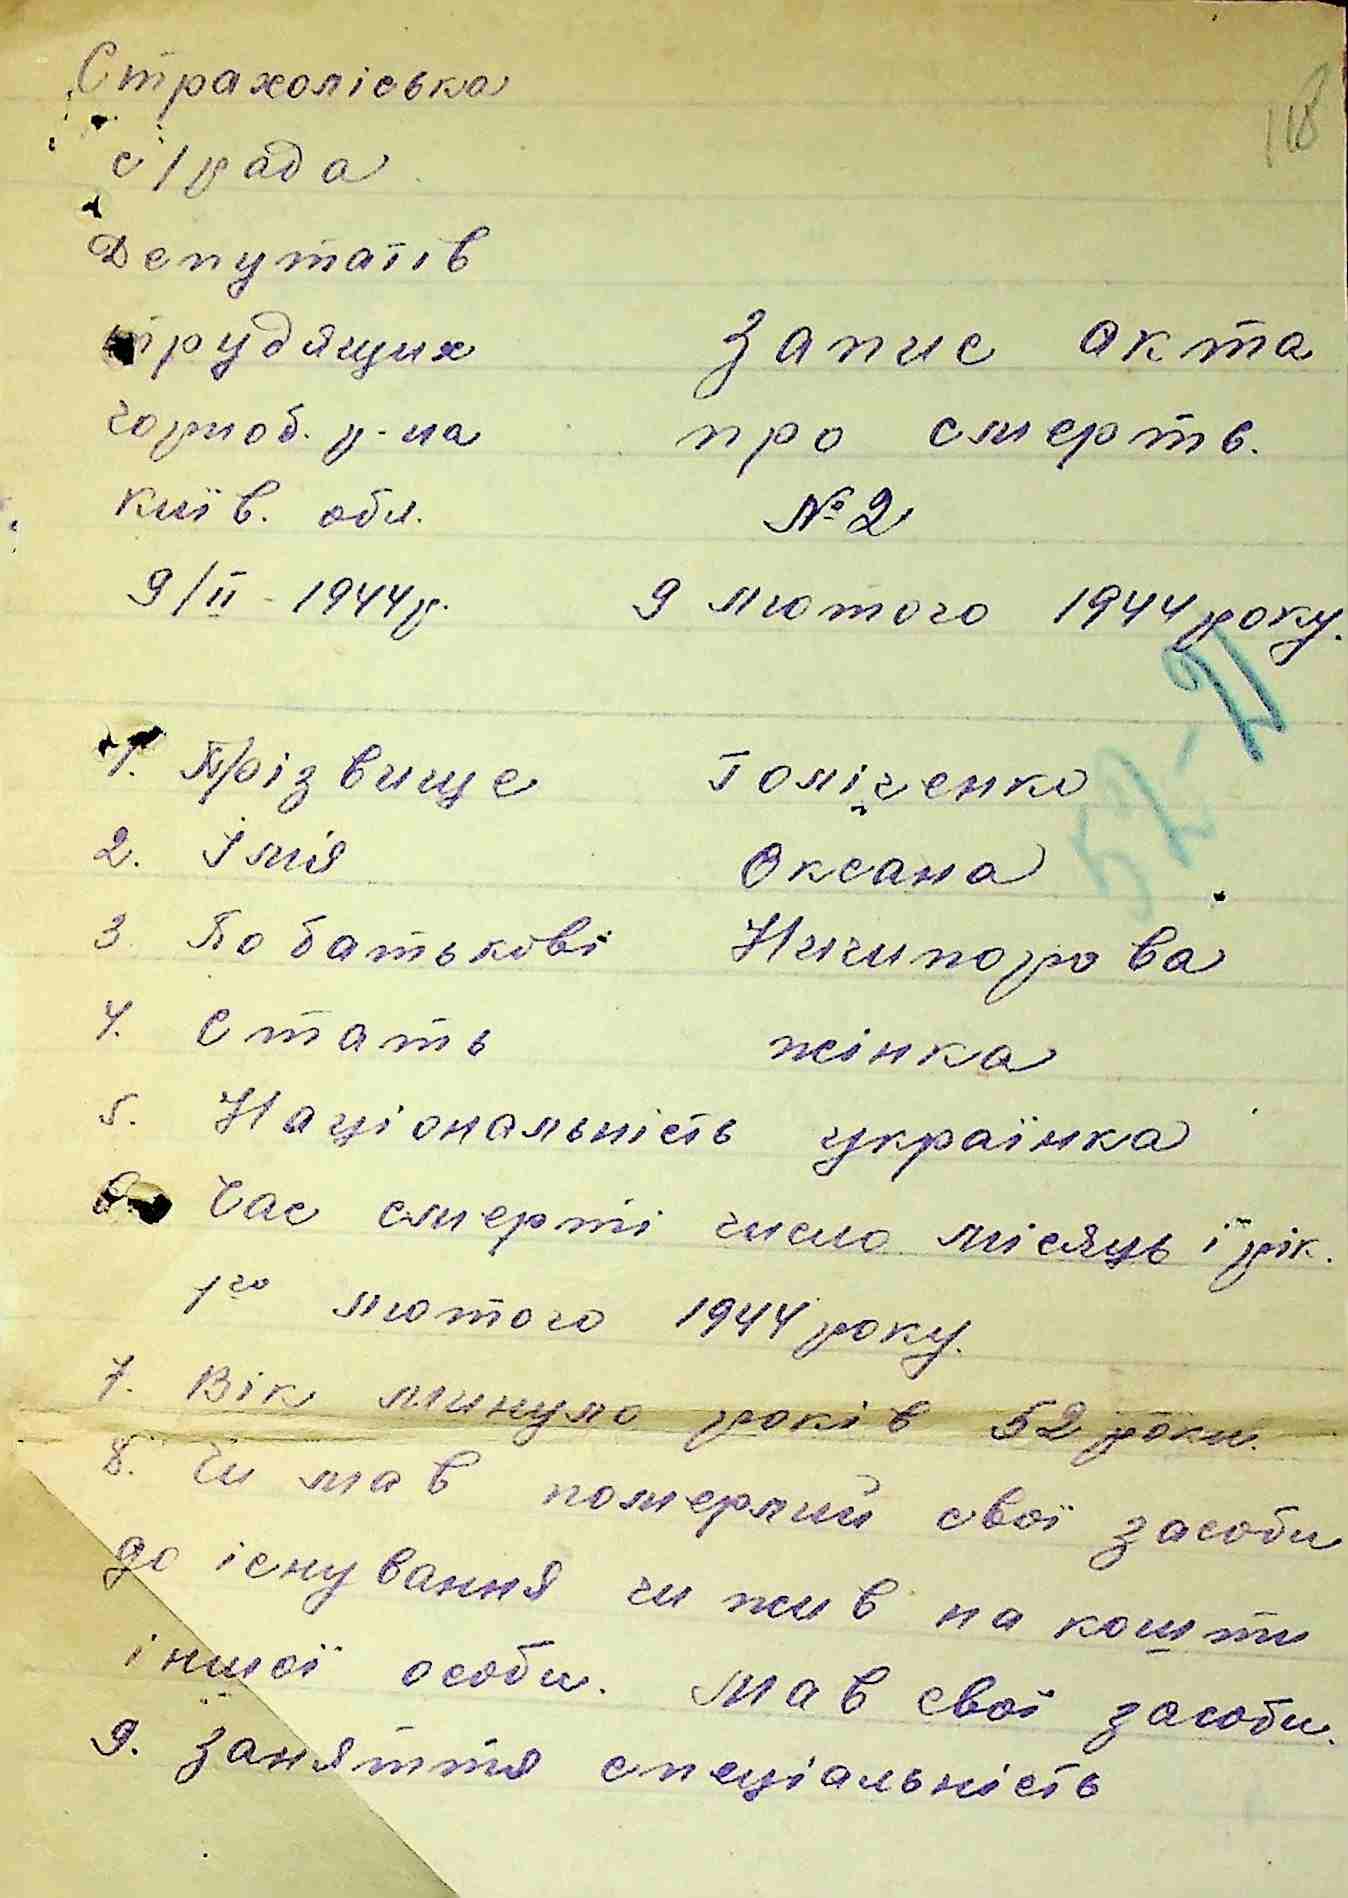 Страхоліська
118
с/рада
Депутатів
трудящих
Запис акта
чорноб. р-на
про смерть.
Київ. обл.
№ 2
9/II - 1944 р.
9 лютого 1944 року.
52-21
1. Прізвище Голіченко
2. Імія Оксана
3. По батькові Ничипорова
4. Стать жінка
5. Національність українка
6. Час смерті число місяць і рік.
1го лютого 1944 року.
7. Вік минуло років 52 роки.
8. Чи мав померлий свої засоби
до існування чи жив на кошти
іншої особи. Мав свої засоби.
9. Заняття спеціальність